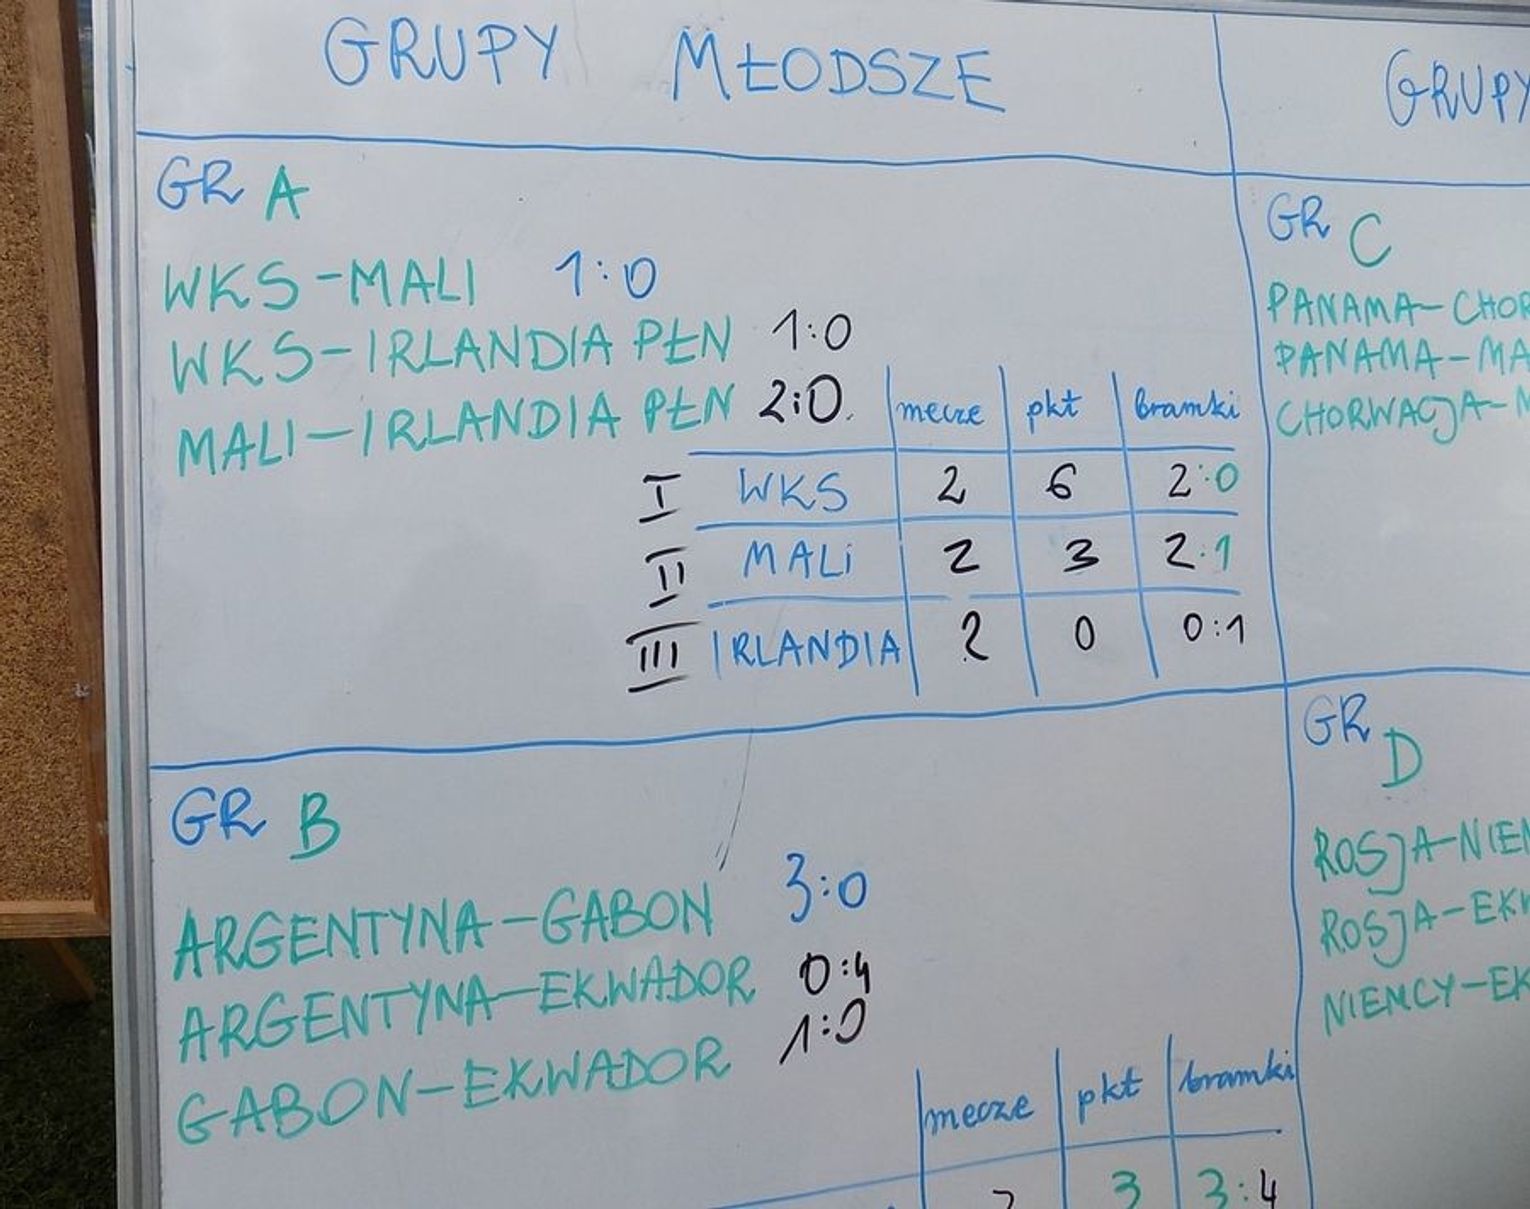 GRUPY MŁODSZE
GR A
WKS-MALI 1:0
WKS-IRLANDIA PŁN 1:0
MALI-IRLANDIA PŁN 2:0
mecze pkt bramki
I WKS 2 6 2:0
II MALi 2 3 2:1
III IRLANDIA 2 0 0:1
GR B
ARGENTYNA-GABON 3:0
ARGENTYNA-EKWADOR 0:4
GABON-EKWADOR 1:0
mecze pkt bramki
3 3:4
GRUPY
GR C
PANAMA-CHOR
PANAMA-MA
CHORWACJA-
GR D
ROSJA-NIEM
ROSJA-EKW
NIEMCY-EK